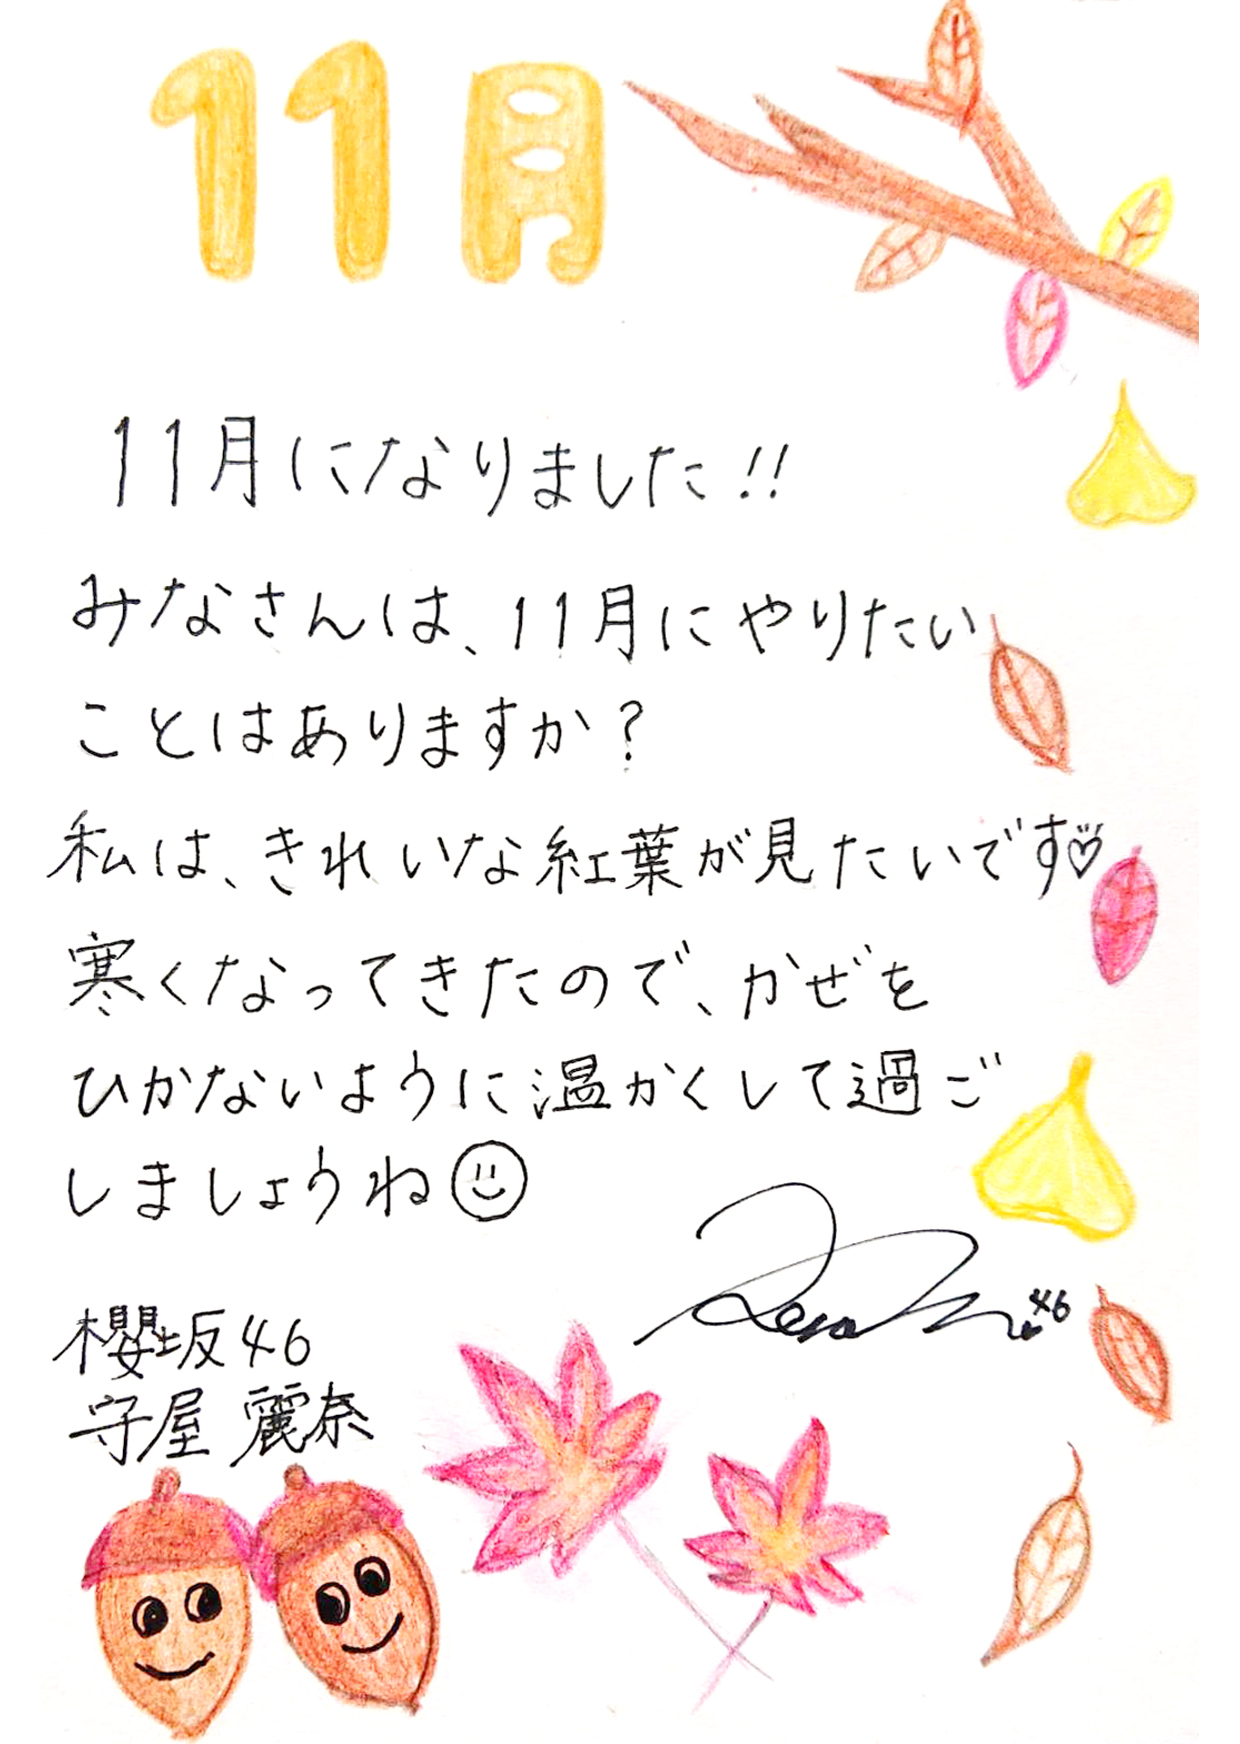 11月
11月になりました!!
みなさんは、11月にやりたい
ことはありますか?
私は、きれいな紅葉が見たいです♡
寒くなってきたので、かぜを
ひかないように温かくして過ご
しましょうね☺
46
櫻坂46
守屋 麗奈